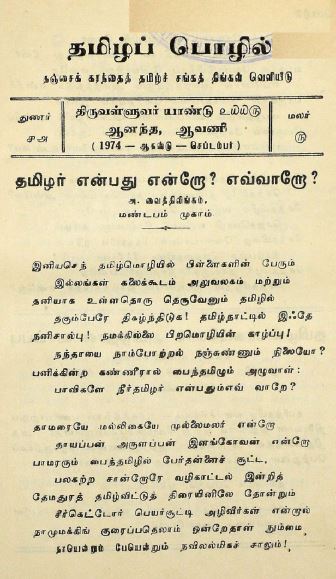 தமிழ்ப் பொழில்
தஞ்சைக் கரந்தைத் தமிழ்ச் சங்கத் திங்கள் வெளியீடு
துணர்
௫௰
திருவள்ளுவர் யாண்டு
ஆனந்த, ஆவணி
(1974 — ஆகஸ்டு — செப்டம்பர்)
மலர்
௫
தமிழர் என்பது என்றோ? எவ்வாறோ?
அ. வைத்திலிங்கம்,
மண்டபம் முகாம்
இனியசெந் தமிழ்மொழியில் பிள்ளைகளின் பேரும்
இல்லங்கள் கலைகூடம் அலுவலகம் மற்றும்
தனியாக உள்ளதொரு தெருவேனும் தமிழில்
தகும்பேரே திகழ்ந்திடுக! தமிழ்நாட்டில் இஃதே
தனிசால்பு! நமக்கில்லை பிறமொழியின் காழ்ப்பு!
நந்தாயை நாம்போற்றல் நஞ்சுண்ணும் நிலையோ?
பனிக்கின்ற கண்ணீரால் பைந்தமிழும் அழுவாள்:
பாவிகளே நீர்தமிழர் என்பதும்எவ் வாறே?
தாமரையே மல்லிகையே முல்லைமலர் என்றோ
தாயப்பன் அருளப்பன் இளங்கோவன் என்றோ
பாமரரும் பைந்தமிழில் பேர்தன்னைச் சூட்ட,
பலகற்ற சான்றோரே வழிகாட்டல் இன்றித்
தேமதுரத் தமிழ்விட்டுத் திரையினிலே தோன்றும்
சீர்கெட்டோர் பெயர்சூட்டி அழிவீர்கள் என்றால்
நாமுமக்கிங் குரைப்பதெலாம் ஒன்றேதான் நும்மை
நாயென்றும் பேயென்றும் நவிலல்மிகச் சாலும்!